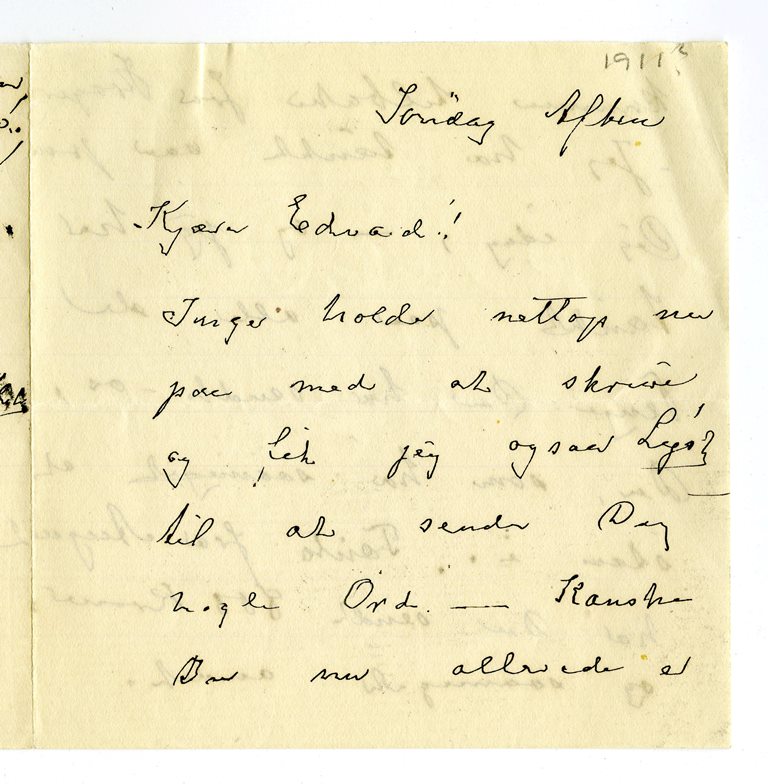 1911?
Søndag Aften
Kjære Edvard!
Inger holder nettop nu
paa med at skrive
og fik jeg ogsaa Lyst
til at sende Dig
nogle Ord. — Kanske
Du nu allerede er